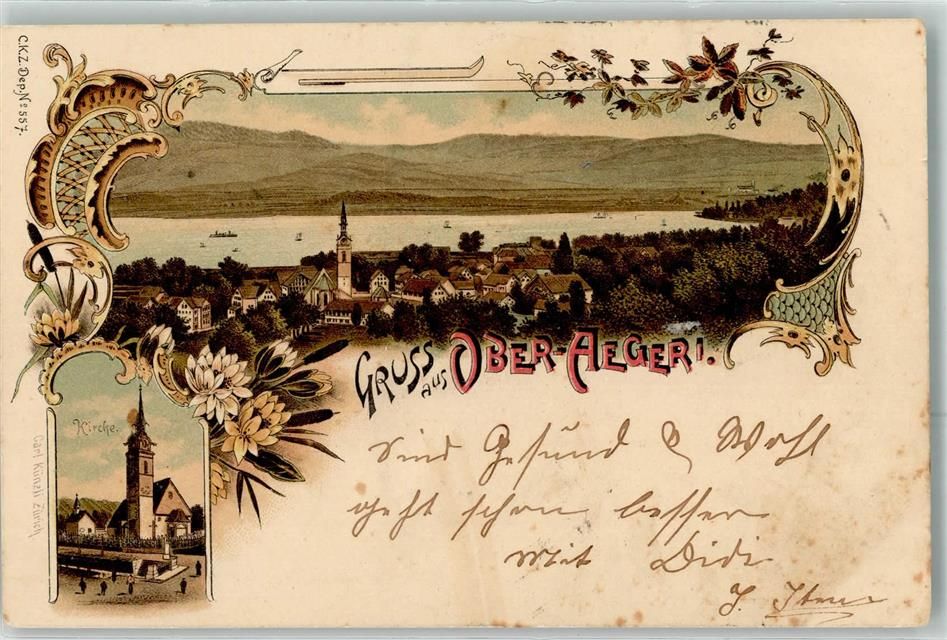 C.K.Z. Dep. No 557.
GRUSS aus OBER-AEGERI.
Kirche.
Carl Künzli Zürich
Sind Gesund & Wohl
geht schon besser
mit Didi
J.